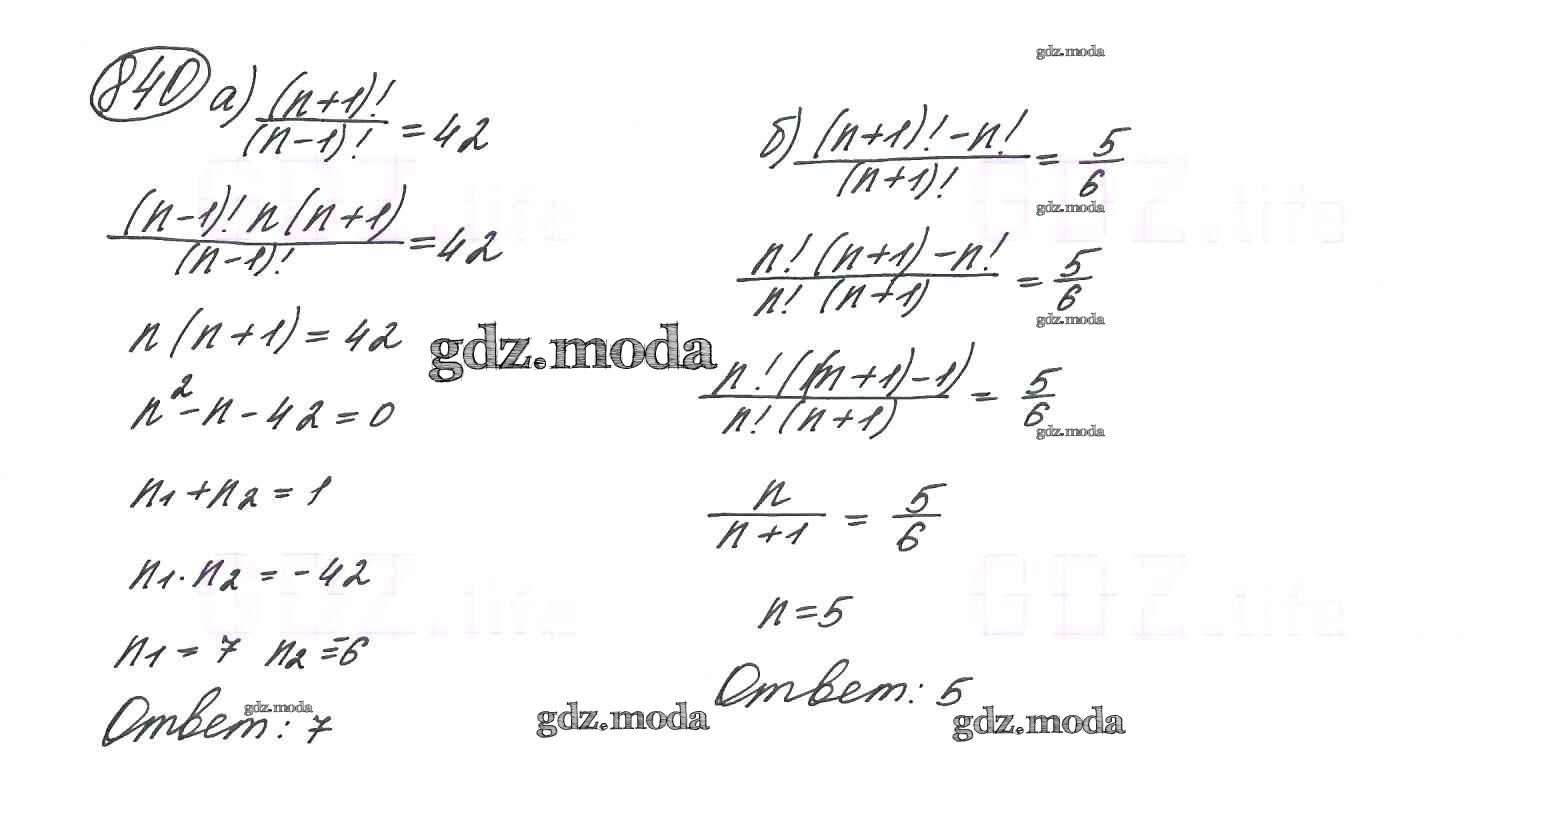 840 а) (n+1)! / (n-1)! = 42
(n-1)! n (n+1) / (n-1)! = 42
n (n+1) = 42
n² - n - 42 = 0
n₁ + n₂ = 1
n₁ · n₂ = -42
n₁ = 7 n₂ = -6
Ответ: 7
б) (n+1)! - n! / (n+1)! = 5/6
n! (n+1) - n! / n! (n+1) = 5/6
n! ((n+1)-1) / n! (n+1) = 5/6
n / n+1 = 5/6
n = 5
Ответ: 5
gdz.moda
gdz.moda
gdz.moda
gdz.moda
gdz.moda
gdz.moda
gdz.moda
gdz.moda
GDZ.life
GDZ.life
GDZ.life
GDZ.life